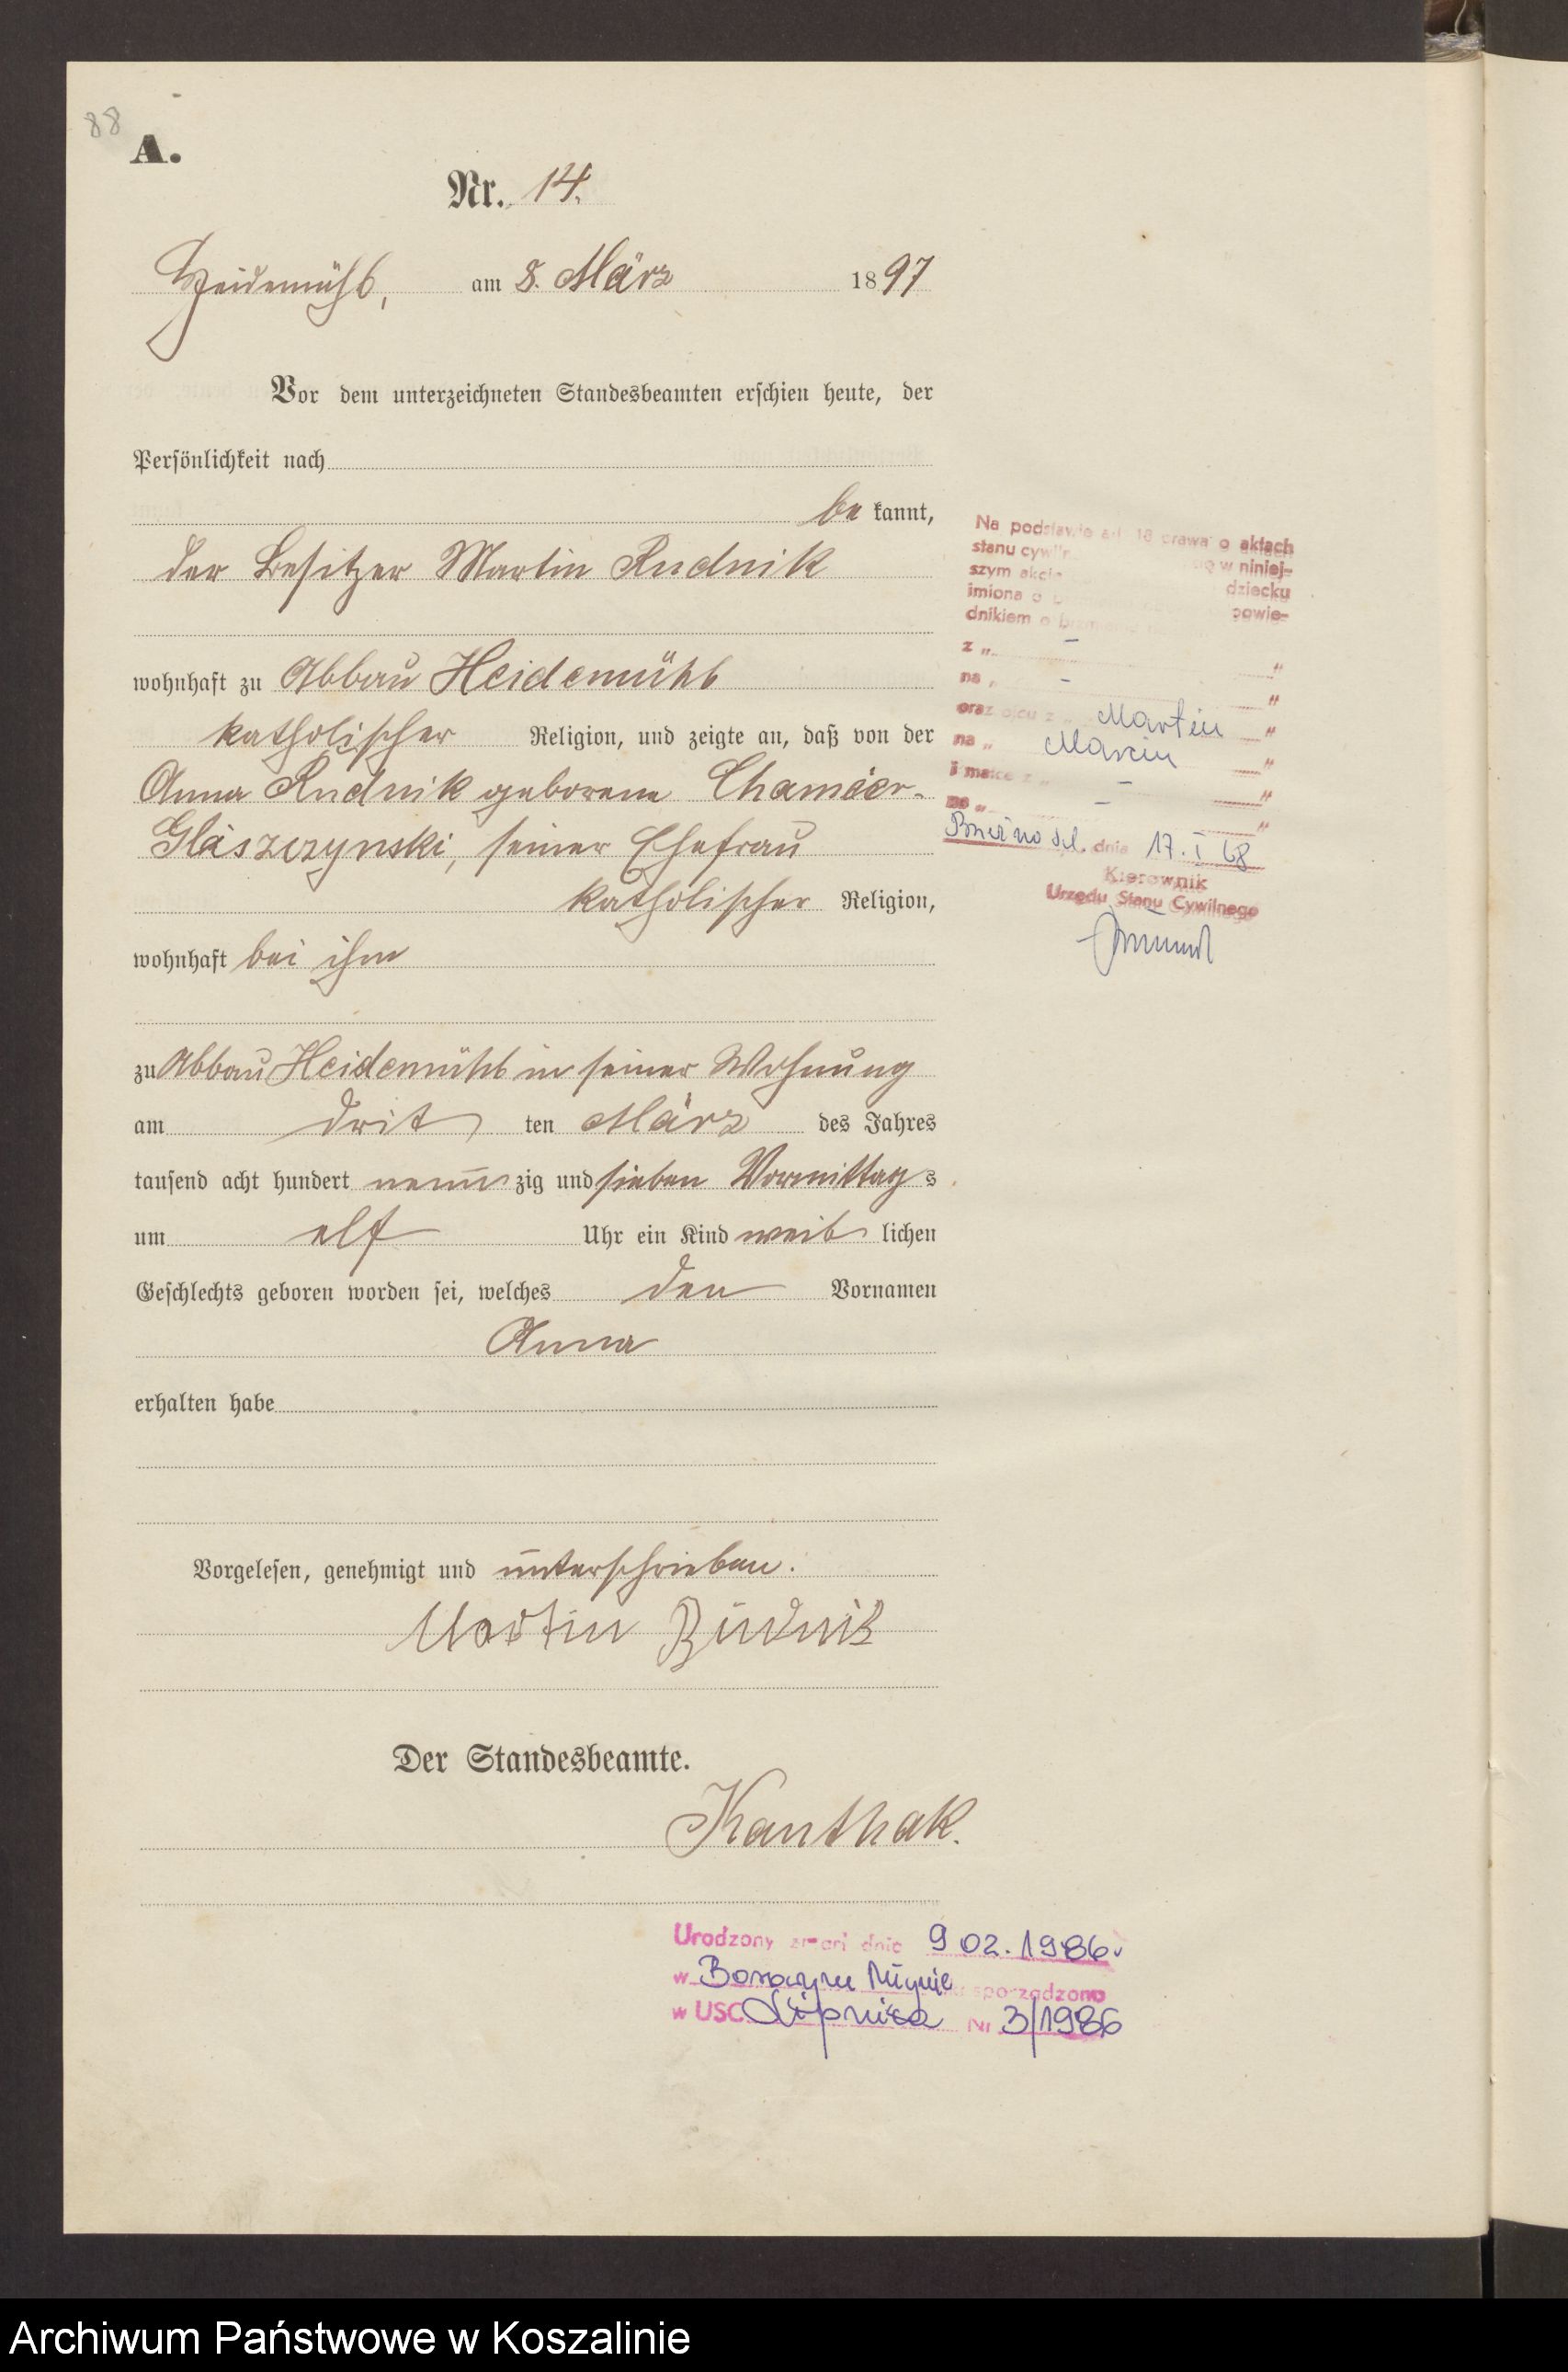 88
A.
Nr. 14.
Heidemühl, am 8. März 1897
Vor dem unterzeichneten Standesbeamten erschien heute, der
Persönlichkeit nach
be kannt,
der Besitzer Martin Rudnik
wohnhaft zu Abbau Heidemühl
katholischer Religion, und zeigte an, daß von der
Anna Rudnik geborene Chamier-
Gliszczynski, seiner Ehefrau
katholischer Religion,
wohnhaft bei ihm
zu Abbau Heidemühl in seiner Wohnung
am drit ten März des Jahres
tausend acht hundert neun zig und sieben Vormittag s
um elf Uhr ein Kind weib lichen
Geschlechts geboren worden sei, welches den Vornamen
Anna
erhalten habe
Vorgelesen, genehmigt und unterschrieben.
Martin Rudnik
Der Standesbeamte.
Kanthak.
Na podstawie art. 18 prawa o aktach
stanu w niniej-
szym akcie dziecku
imiona o powie-
dnikiem o
z „ – "
na „ – "
oraz ojcu z „ Martin "
na „ Marcin "
i matce z „ – "
na „ – "
dnia 17. I 68
Kierownik
Urzędu Stanu Cywilnego
Urodzony zmarł dnia 9 02. 1986
w Borowym Młynie sporządzono
w USC Lipnica Nr 3/1986
Archiwum Państwowe w Koszalinie